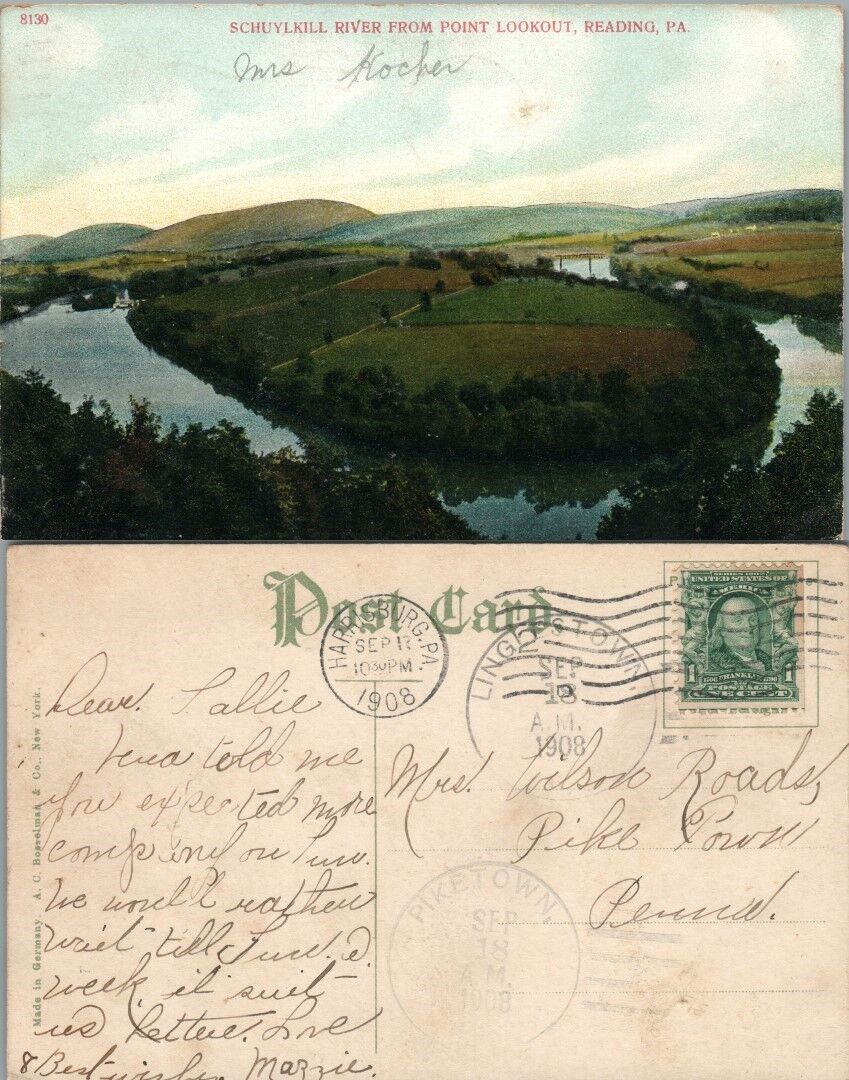 8130
SCHUYLKILL RIVER FROM POINT LOOKOUT, READING, PA.
Mrs Kocher
Post Card
HARRISBURG, PA.
SEP 17
10 30 PM
1908
LINGLESTOWN,
SEP
18
A.M.
1908
SERIES 1902
UNITED STATES OF
AMERICA
1 1
1706 FRANKLIN 1790
POSTAGE
ONE CENT
Made in Germany. A. C. Bosselman & Co., New York.
Dear. Sallie
told me
you expected more
company on Sun.
We would rather
wait till Sun. a
week it suit
us better. Love
& Best wishes, Mazzie.
Mrs. Wilson Roads,
Pike Town
Penna.
PIKETOWN,
SEP
18
A.M.
1908